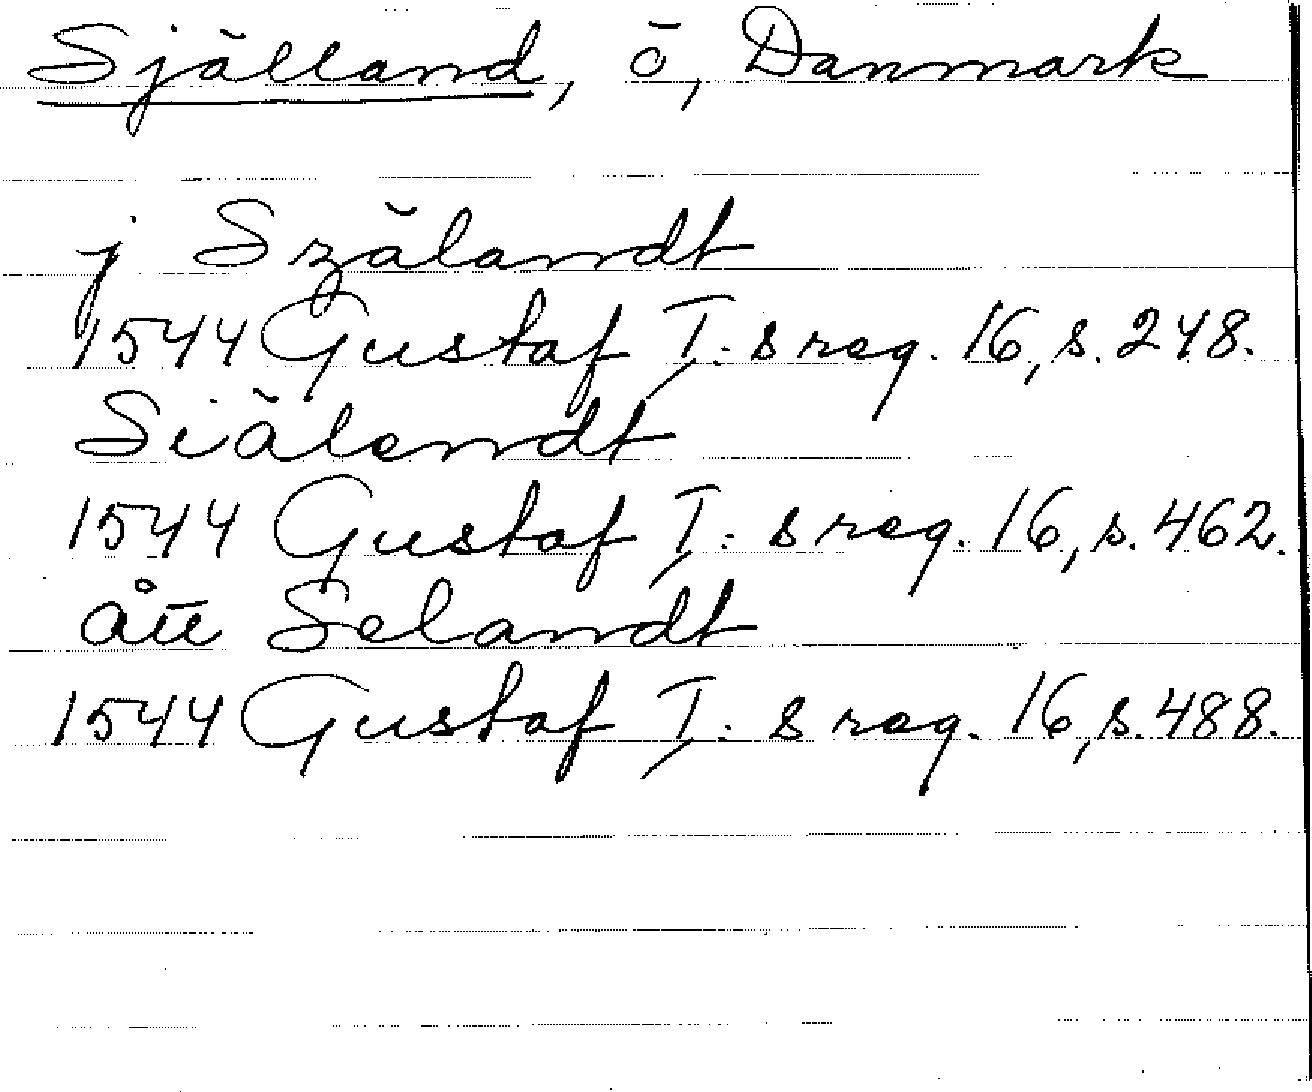 Själland, ö, Danmark
j Szälandt
1544 Gustaf I:s reg. 16, s. 248.
Siälandt
1544 Gustaf I:s reg. 16, s. 462.
ått Selandt
1544 Gustaf I:s reg. 16, s. 488.